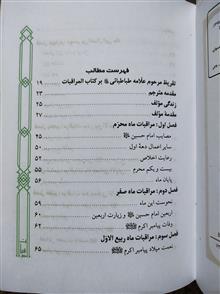 فهرست مطالب
تقریظ مرحوم علامه طباطبائی بر کتاب المراقبات ۱۹
مقدمه مترجم ۲۳
زندگی مؤلف ۲۵
مقدمه مؤلف ۲۷
فصل اول: مراقبات ماه محرّم
مصایب امام حسین ۴۵
سایر اعمال دههٔ اول ۵۰
رعایت اخلاص ۵۲
بیست و یکم محرم ۵۵
پایان ماه ۵۶
فصل دوم: مراقبات ماه صفر
نحوست این ماه ۵۹
اربعین امام حسین و زیارت اربعین ۶۰
وفات پیامبر اکرم ۶۲
فصل سوم: مراقبات ماه ربیع الاوّل
نعمت میلاد پیامبر اکرم ۶۵